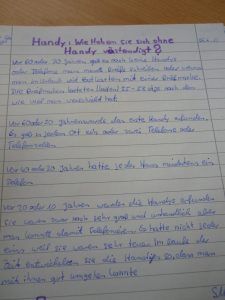 Handy: Wie Haben sie sich ohne
Handy verständigt?
Vor 60 oder 70 Jahren gab es noch keine Handys
oder Telefone man musste Briefe schreiben oder wenn
man im Urlaub wie Postkarten mit einer Briefmarke.
Die Briefmarken kosteten je nach dem
wie weit man verschickt hat.
Vor 60 oder 70 Jahren wurde das erste Handy erfunden.
Es gab in jedem Ort ein oder zwei Telefone oder
Telefonzellen.
Vor 40 oder 30 Jahren hatte jedes Haus mindestens ein
Telefon
Vor 20 oder 10 Jahren wurden die Handys erfunden
Sie waren zwar noch sehr groß und unhandlich aber
man konnte damit Telefonieren Es hatte nicht jeder
eins weil sie waren sehr teuer Im Laufe der
Zeit entwickelten sie die Handys so, dass man
mit ihnen gut umgehen konnte